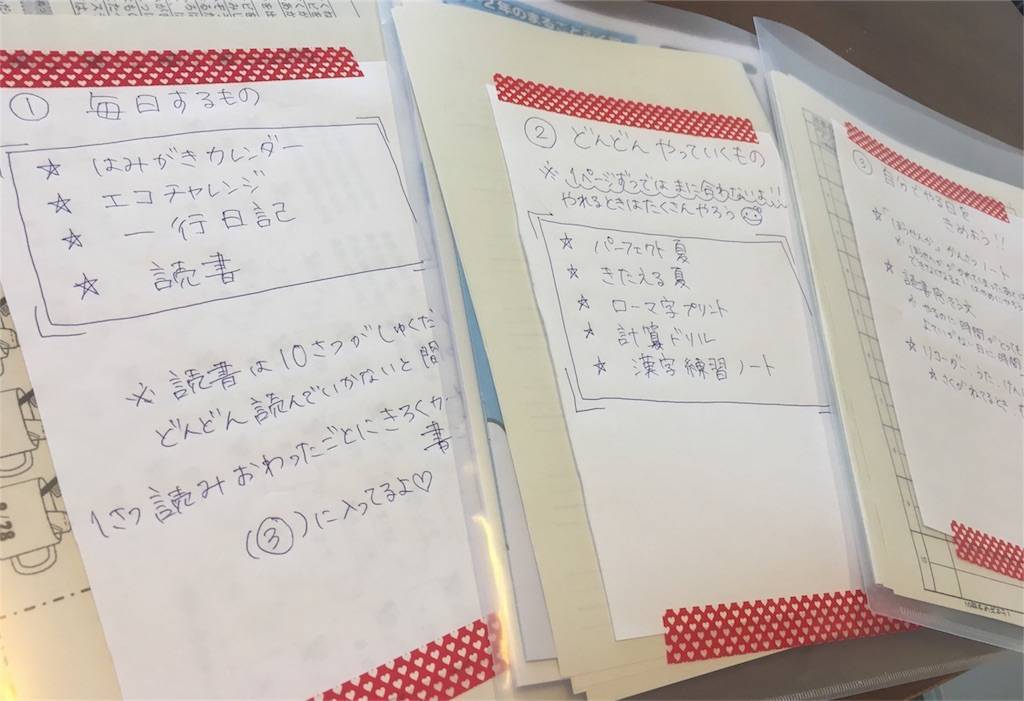 ① 毎日するもの
☆ はみがきカレンダー
☆ エコチャレンジ
☆ 一行日記
☆ 読書
※ 読書は10さつがしゅくだ
どんどん読んでいかないと間
1さつ読みおわったごとにきろくカー
書
(③)に入ってるよ♡
2/28
2年の
② どんどんやっていくもの
※ 1ページずつではまに合わないよ!!
やれるときはたくさんやろう
☆ パーフェクト夏
☆ きたえる夏
☆ ローマ字プリント
☆ 計算ドリル
☆ 漢字練習ノート
③ 自分でやる日を
きめよう!!
かんさつノート
☆ 読書感そう文
やるのに時間がとっても
日に時間
☆ リコーダー、うた、けん